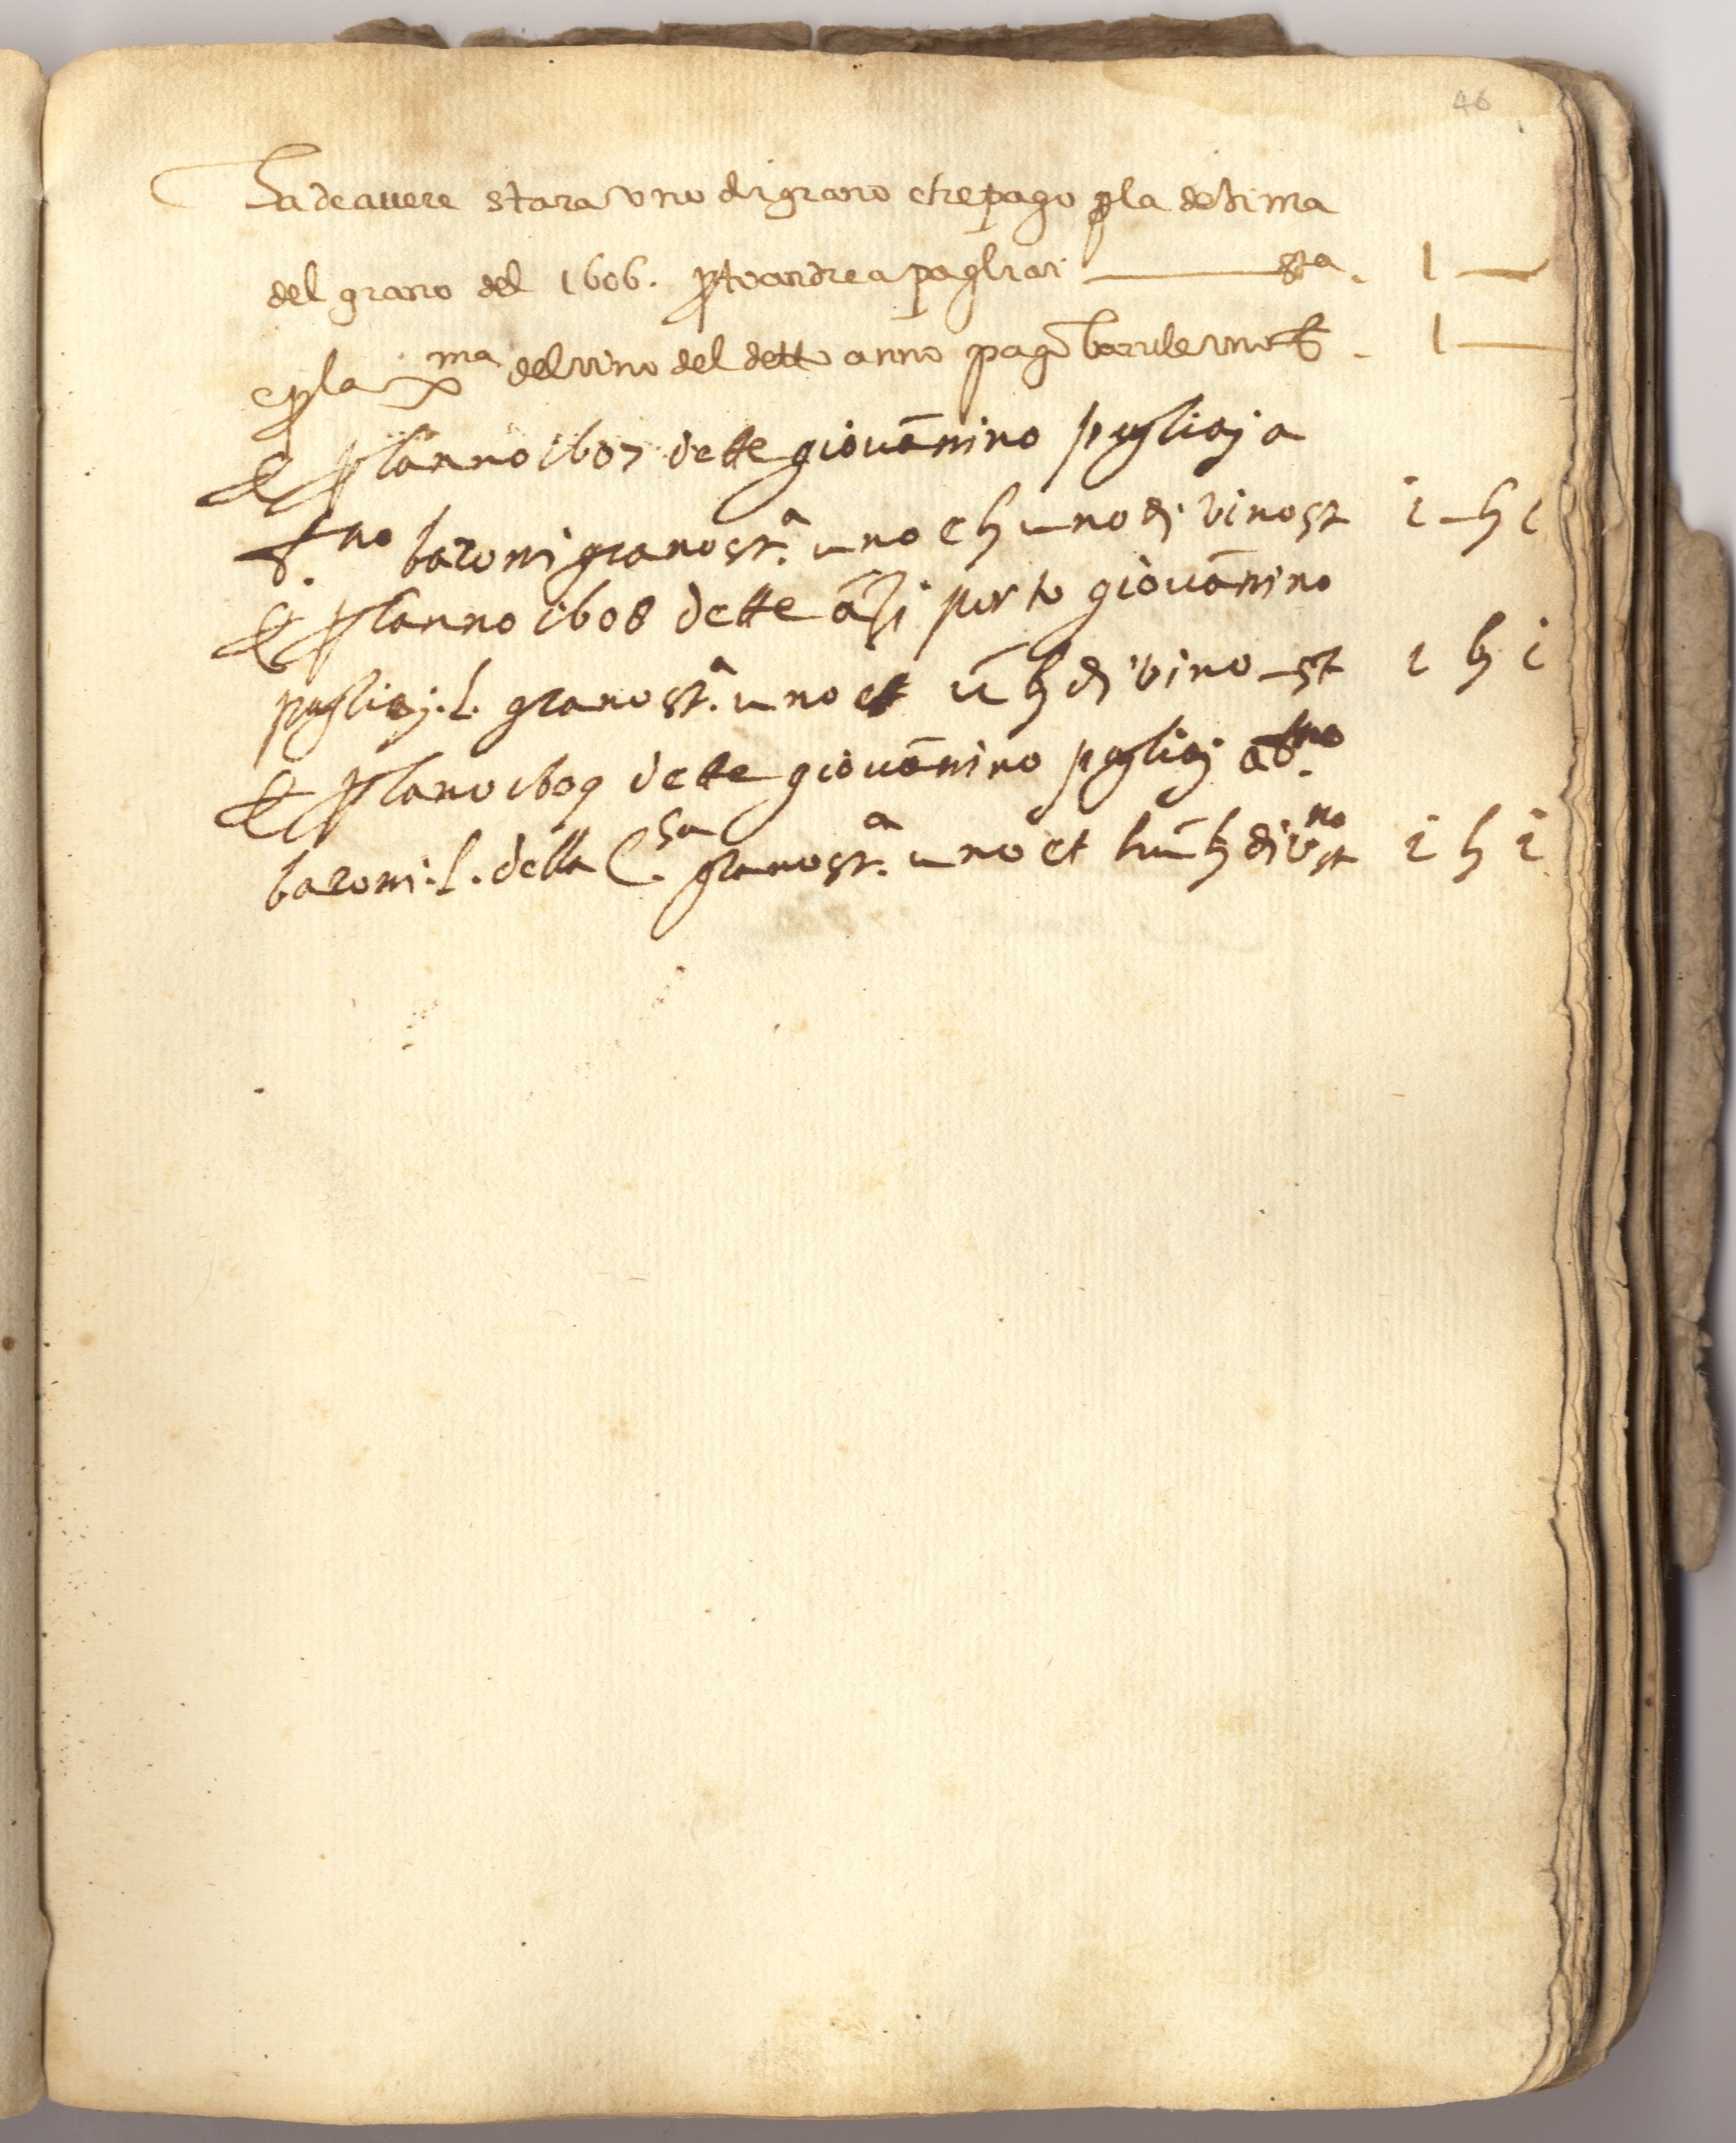 46
Ha de avere stara uno di grano che pago p la decima
del grano del 1606. porto andrea pagliai — sta. 1 —
e p la xma del vino del detto anno pago barile uno b. 1 —
et p lanno 1607 dette giovānino pagliaj a
baroni grano st.a uno e b uno di vino st 1 – b 1
et p lanno 1608 dette porto giovānino
pagliaj. l. grano st.a uno et ū b di vino – st 1 b i
et p lano 1609 dette giovānino pagliaj a
baroni. l. della C.sa grano st.a uno et hū b di v.no st 1 b 1